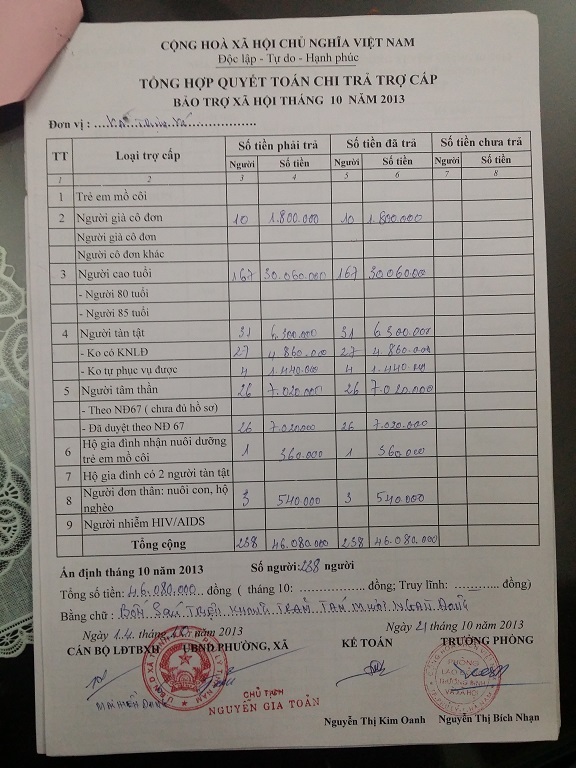 CỘNG HOÀ XÃ HỘI CHỦ NGHĨA VIỆT NAM
Độc lập - Tự do - Hạnh phúc
TỔNG HỢP QUYẾT TOÁN CHI TRẢ TRỢ CẤP
BẢO TRỢ XÃ HỘI THÁNG 10 NĂM 2013
Đơn vị :
TT Loại trợ cấp Số tiền phải trả Số tiền đã trả Số tiền chưa trả
Người Số tiền Người Số tiền Người Số tiền
1 2 3 4 5 6 7 8
1 Trẻ em mồ côi
2 Người già cô đơn 10 1.800.000 10 1.800.000
Người già cô đơn
Người cô đơn khác
3 Người cao tuổi 167 30.060.000 167 30.060.000
- Người 80 tuổi
- Người 85 tuổi
4 Người tàn tật 31 6.300.000 31 6.300.000
- Ko có KNLĐ 27 4.860.000 27 4.860.000
- Ko tự phục vụ được 4 1.440.000 4 1.440.000
5 Người tâm thần 26 7.020.000 26 7.020.000
- Theo NĐ67 ( chưa đủ hồ sơ)
- Đã duyệt theo NĐ 67 26 7.020.000 26 7.020.000
6 Hộ gia đình nhận nuôi dưỡng trẻ em mồ côi 1 360.000 1 360.000
7 Hộ gia đình có 2 người tàn tật
8 Người đơn thân: nuôi con, hộ nghèo 3 540.000 3 540.000
9 Người nhiễm HIV/AIDS
Tổng cộng 238 46.080.000 238 46.080.000
Ấn định tháng 10 năm 2013 Số người: 238 người
Tổng số tiền: 46.080.000 đồng ( tháng 10: ............... đồng; Truy lĩnh: ........... đồng)
Bằng chữ : Bốn sáu triệu không trăm tám mươi ngàn đồng
Ngày 14 tháng 10 năm 2013 Ngày 21 tháng 10 năm 2013
CÁN BỘ LĐTBXH UBND PHƯỜNG, XÃ KẾ TOÁN TRƯỞNG PHÒNG
CHỦ TỊCH
NGUYỄN GIA TOẢN
Nguyễn Thị Kim Oanh Nguyễn Thị Bích Nhạn